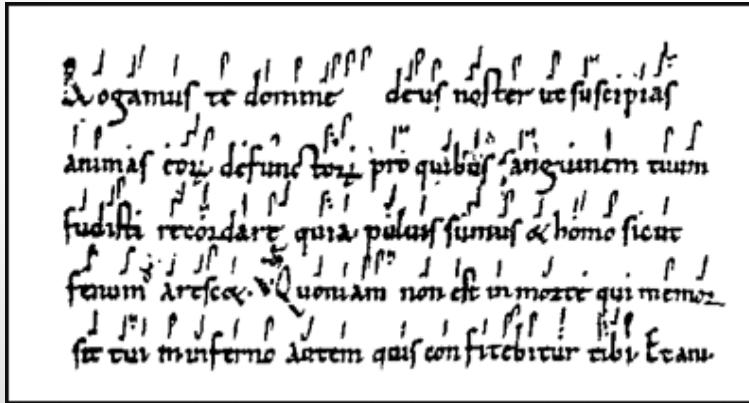 Rogamus te domine deus noster ut suscipias
animas eorꝝ defunctorꝝ pro quibus sanguinem tuum
fudisti recordare quia puluis sumus & homo sicut
fenum aresc&. Quoniam non est in morte qui memor
sit tui in inferno autem quis confitebitur tibi. Et ani